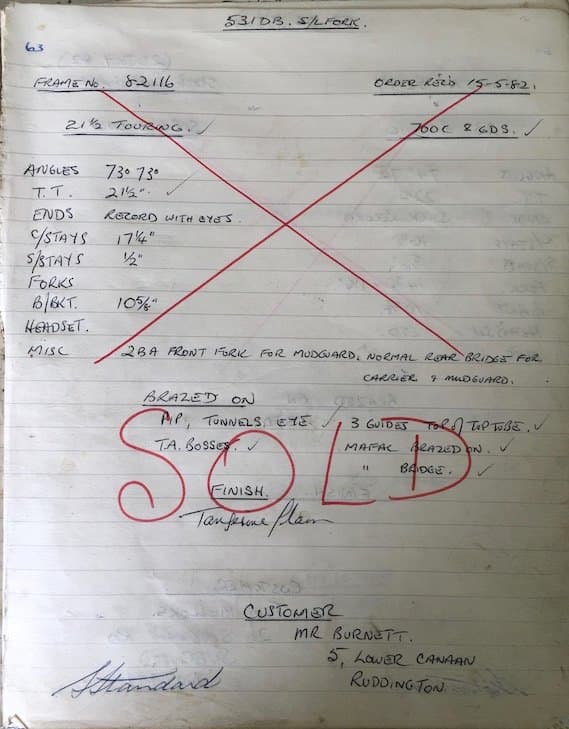 531DB. S/L FORK.
63
FRAME No. 82116 ORDER REC'D 15-5-82.
21½ TOURING. ✓ 700C & GDS. ✓
ANGLES 73° 73°
T.T. 21½". ✓
ENDS RECORD WITH EYES.
C/STAYS 17¼"
S/STAYS ½"
FORKS
B/BKT. 10⅝"
HEADSET.
MISC 2BA FRONT FORK FOR MUDGUARD, NORMAL REAR BRIDGE FOR
CARRIER & MUDGUARD.
BRAZED ON
P/P, TUNNELS, EYE ✓ 3 GUIDES TOP OF TOPTUBE. ✓
T.A. BOSSES. ✓ MAFAC BRAZED ON. ✓
" BRIDGE. ✓
SOLD
FINISH.
Tangerine Flam
CUSTOMER
MR BURNETT.
5, LOWER CANAAN
RUDDINGTON